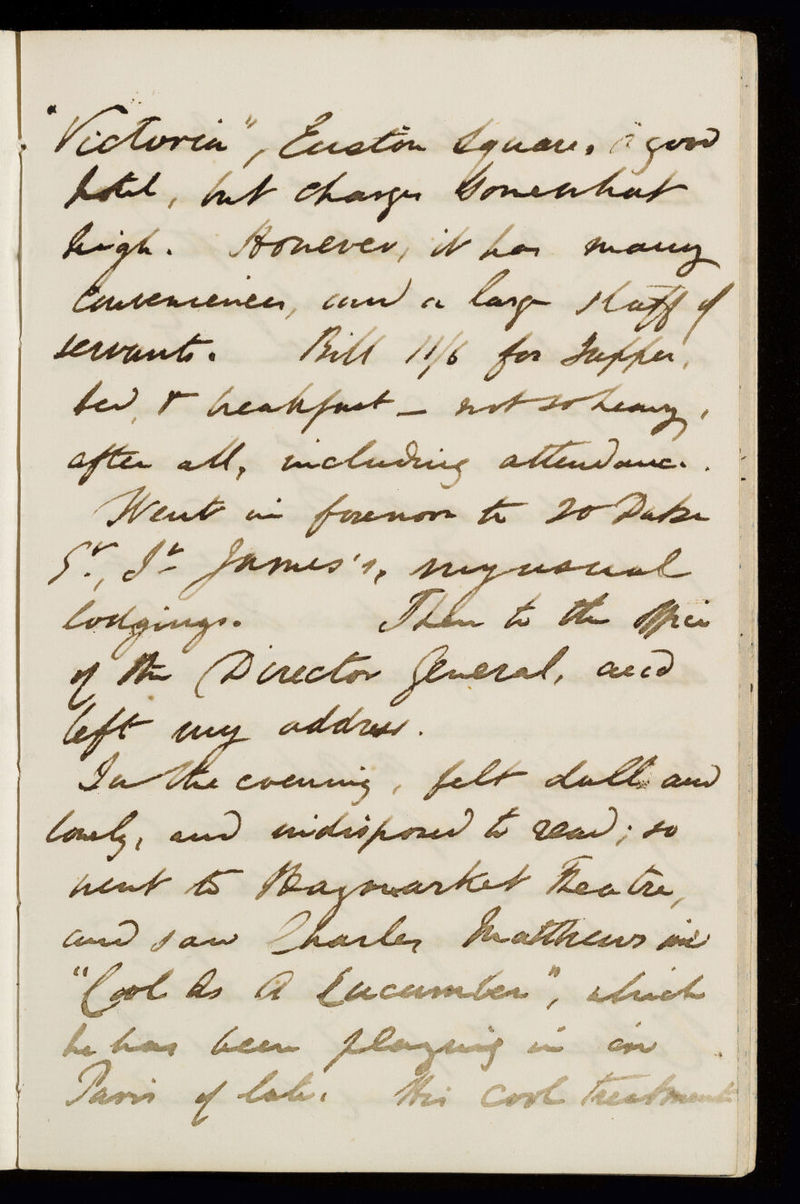 "Victoria", Euston Square. A good
hotel, but charges somewhat
high. However, it has many
conveniences, and a large staff of
servants. Bill 11/6 for supper,
bed, & breakfast – not so heavy,
after all, including attendance.
Went in forenoon to 20 Duke
St., St. James's, my usual
lodgings. Then to the office
of the Director General, and
left my address.
In the evening, felt dull and
lonely, and indisposed to read; so
went to Haymarket Theatre,
and saw Charles Matthews in
"Cool As A Cucumber", which
he has been playing in in
Paris of late. His cool treatment